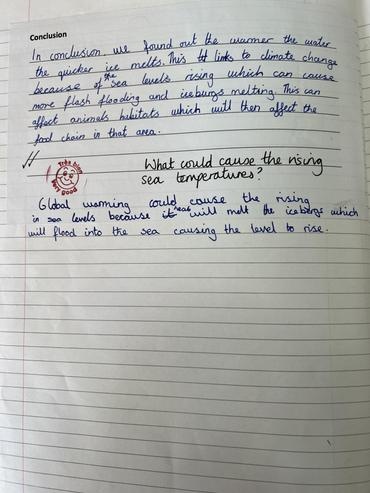 Conclusion
In conclusion we found out the warmer the water
the quicker ice melts. This links to climate change
because of the sea levels rising which can cause
more flash flooding and iceburgs melting. This can
affect animals habitats which will then affect the
food chain in that area.
Très bien
What could cause the rising
Very Good
sea temperatures?
Global warming could cause the rising
in sea levels because heat will melt the icebergs which
will flood into the sea causing the level to rise.